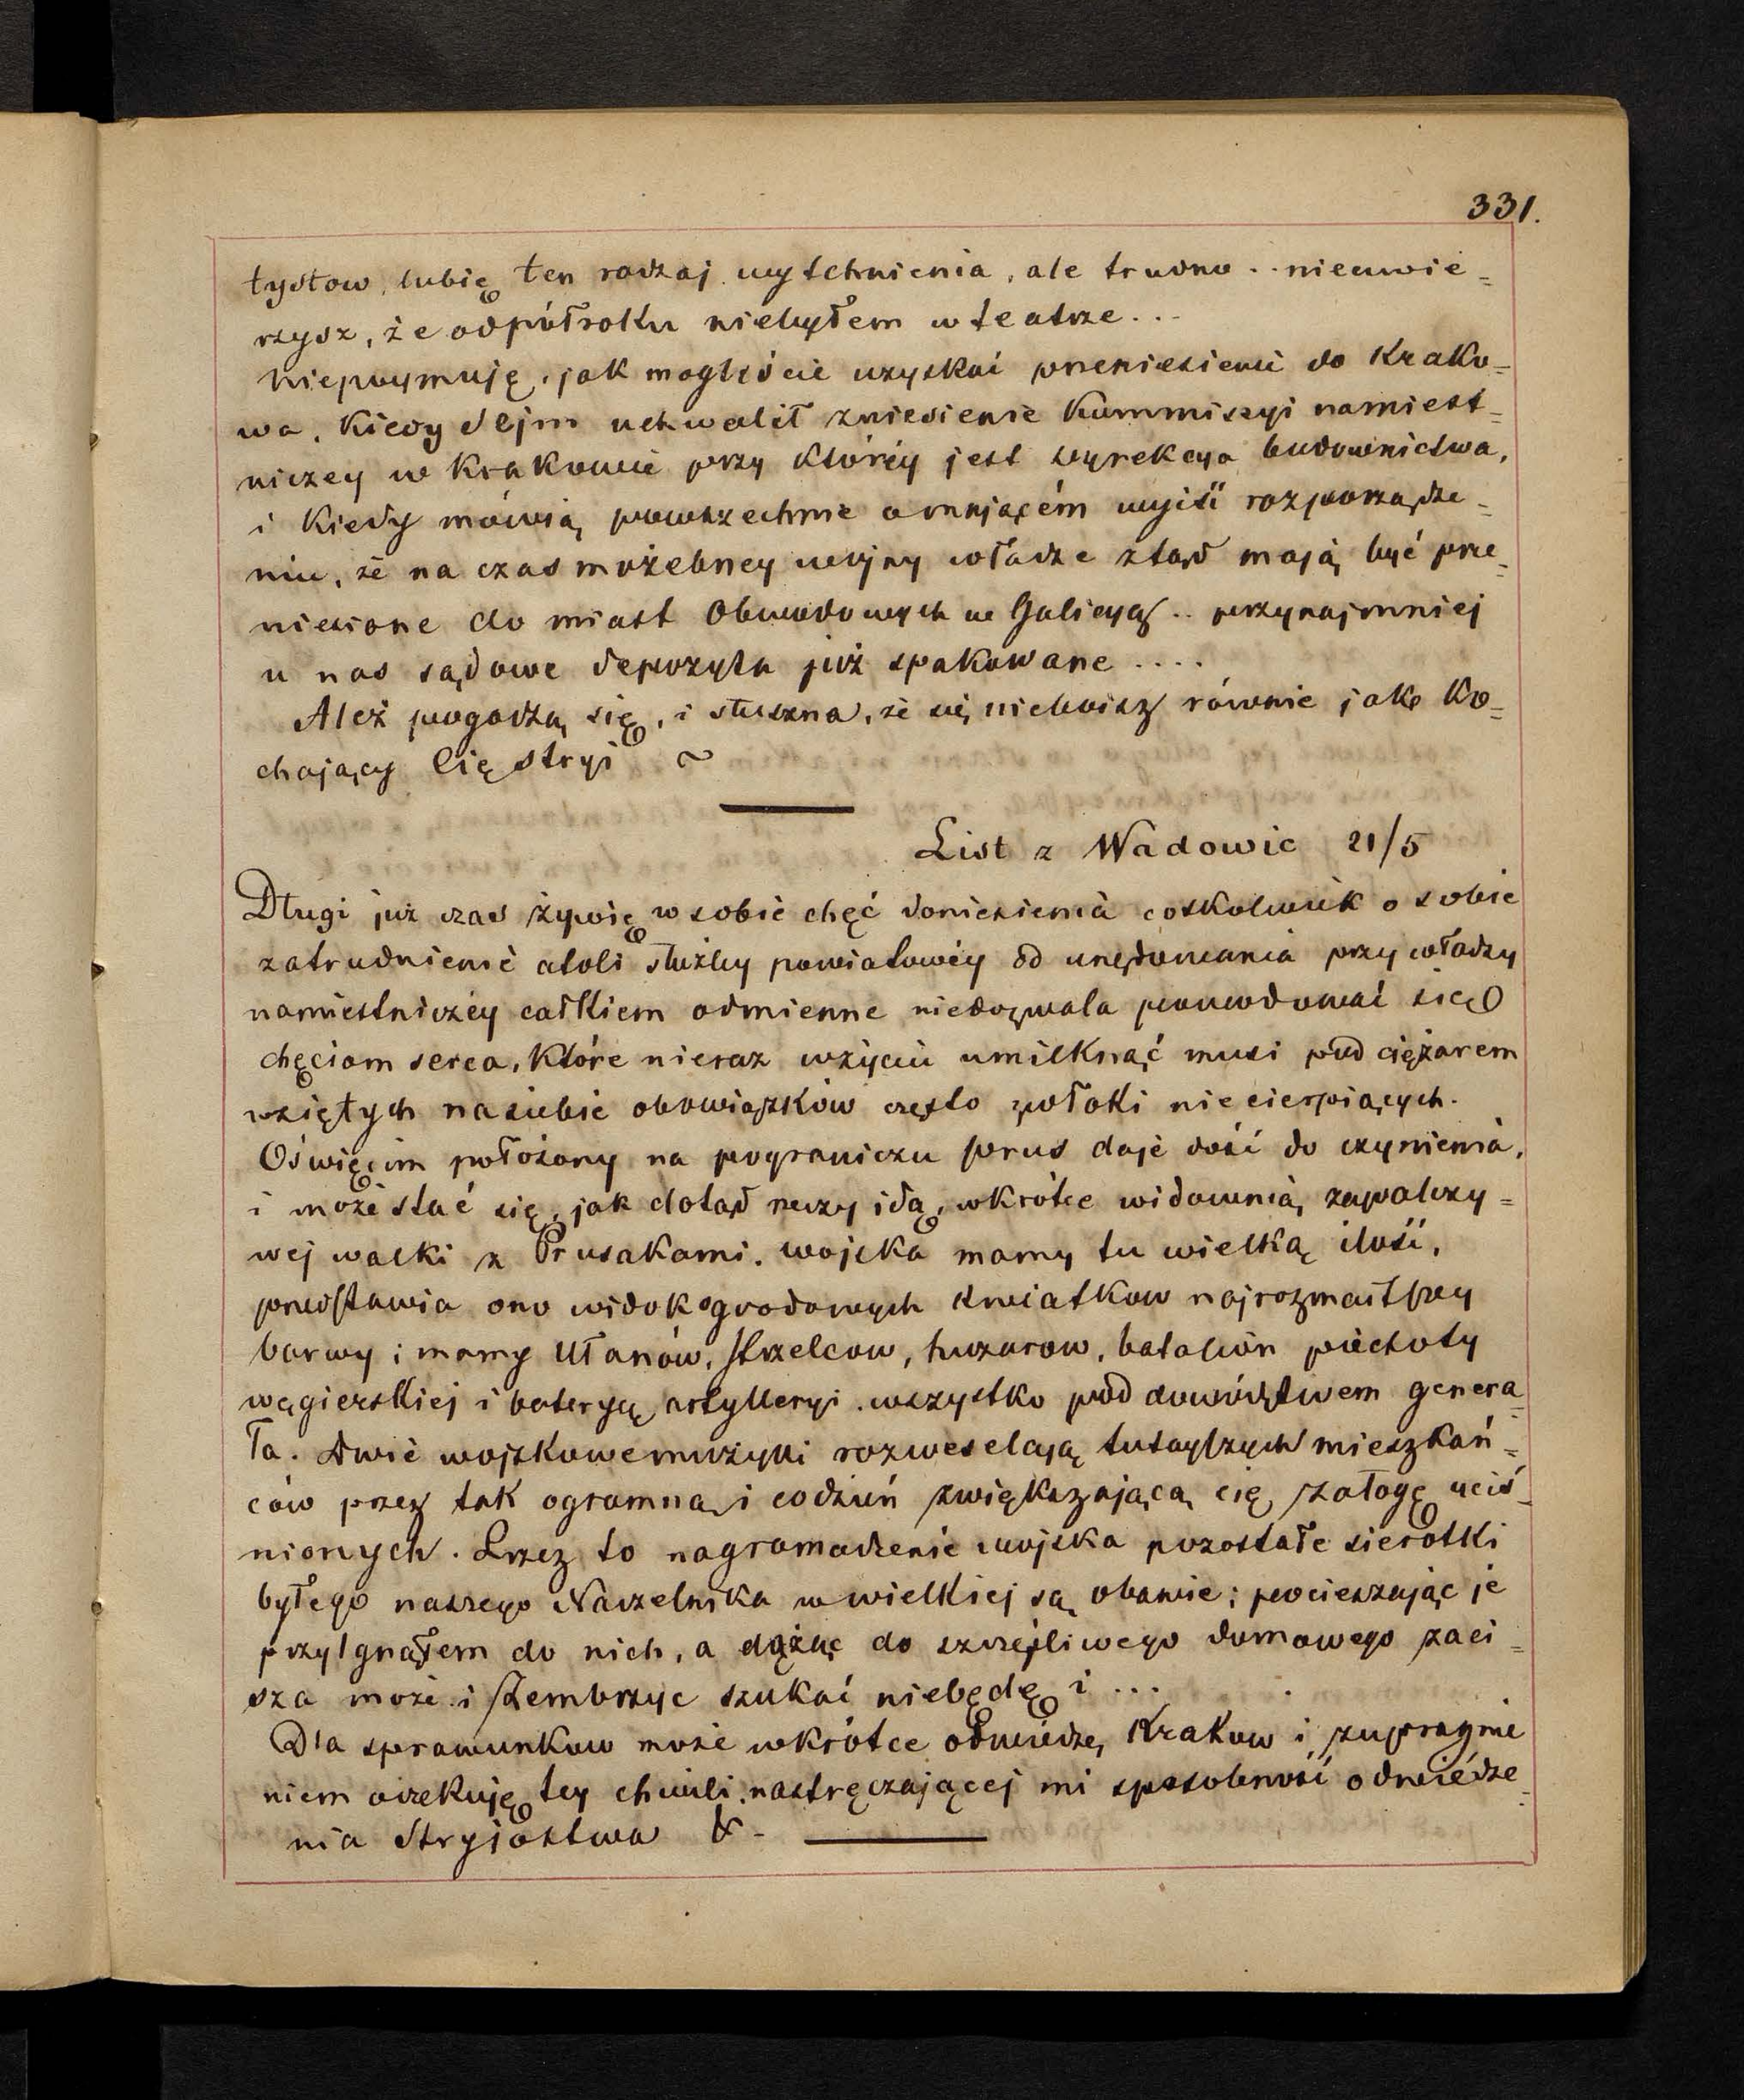 331.
tystow, lubię ten rodzaj wytchnienia, ale trudno .. nieuwie=
rzysz, że odpółroku niebyłem w teatrze...
Niepojmuję, jak mogliście uzyskać przeniesienie do Krako=
wa, Kiedy Sejm uchwalił zniesienie Kommissyi namiest=
niczey w Krakowie przy któréy jest dyrekcya budownictwa,
i Kiedy mówią powszechnie o mającém wyjść rozporządze=
niu, że na czas możebney wojny władze ztąd mają być prze=
niesione do miast Obwodowych w Galicyi .. przynajmniej
u nas sądowe depozyta już spakowane ....
Ależ pogodzą się, i słuszna, że się nieboisz równie jak Ko=
chający Cię stryj ~
List z Wadowic 21/5
Długi już czas żywię w sobie chęć doniesienia coskolwiek o sobie
zatrudnienie atoli służby powiatowéy od urzędowania przy władzy
namiestniczéy całkiem odmienne niedozwala powodować się
chęciom serca, Które nieraz w życiu umilknąć musi pod ciężarem
wziętych nasiebie obowiązków często zwłoki niecierpiących.
Oświęcim położony na pograniczu prus daje dość do czynienia,
i może stać się, jak dotąd rzeczy idą, wkrótce widownią zapalczy=
wej walki z Prusakami. wojska mamy tu wielką ilość,
przedstawia ono widok ogrodowych kwiatkow najrozmaitszey
barwy i mamy Ułanów, strzelcow, huzarow, batalion piechoty
węgierskiej i bateryą artylleryi. wszystko pod dowództwem genera=
ła. Dwie wojskowe muzyki rozweselają tutayszych mieszkań=
ców przez tak ogromną i codzień zwiększającą się załogę uciś=
nionych. Przez to nagromadzenie wojska pozostałe sierotki
byłego naszego Naczelnika w wielkiej są obawie; pocieszając je
przylgnąłem do nich, a dążąc do szczęśliwego domowego zaci=
sza może i Zembrzyc szukać niebędę i ...
Dla sprawunkow może wkrótce odwiedzę Krakow i z upragnie
niem oczekuję tey chwili, nastręczającej mi sposobność odwiedze=
nia Stryjostwa &.